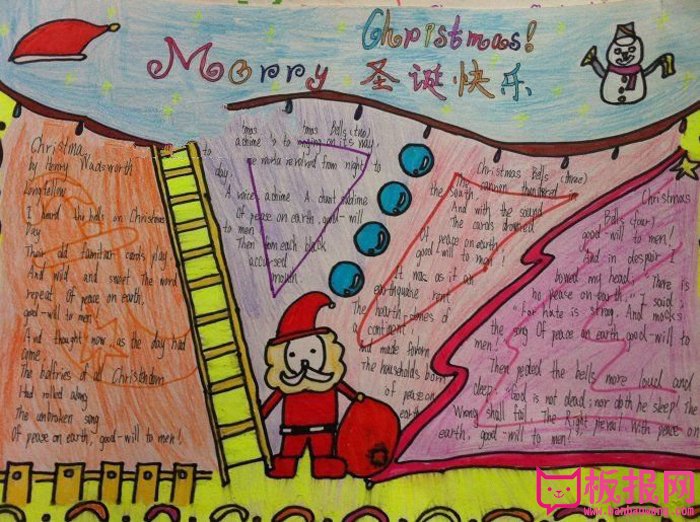 Christmas!
Merry 圣诞快乐
Christmas
by Henry Wadsworth
Longfellow
I heard the bells on Christmas
Day
Their old familiar carols play,
And wild and sweet The word
repeat Of peace on earth,
good-will to men!
And thought how as the day had
come,
The belfries of all Christendom
Had rolled along
The unbroken song
Of peace on earth, good-will to men!
Bells (two)
ringing on its way,
to
The world revolved from night to
day,
A voice, a chime A chant sublime
Of peace on earth, good-will
to men!
Then from each black
accursed
mouth
Christmas Bells (three)
The cannon thundered
the South
And with the sound
The carols drowned
Of peace on earth
good-will to men!
It was as if an
earthquake rent
The hearth-stones of
a continent
And made forlorn
The households born
Of peace on
earth
Christmas
Bells (four)
good-will to men!
And in despair I
bowed my head "There is
no peace on earth," I said
"For hate is strong, And mocks
the song Of peace on earth, good-will to
men!
Then pealed the bells more loud and
deep "God is not dead; nor doth he sleep! The
Wrong shall fail, The Right prevail, With peace on
earth, good-will to men!"
板报网
www.banbaowang.com